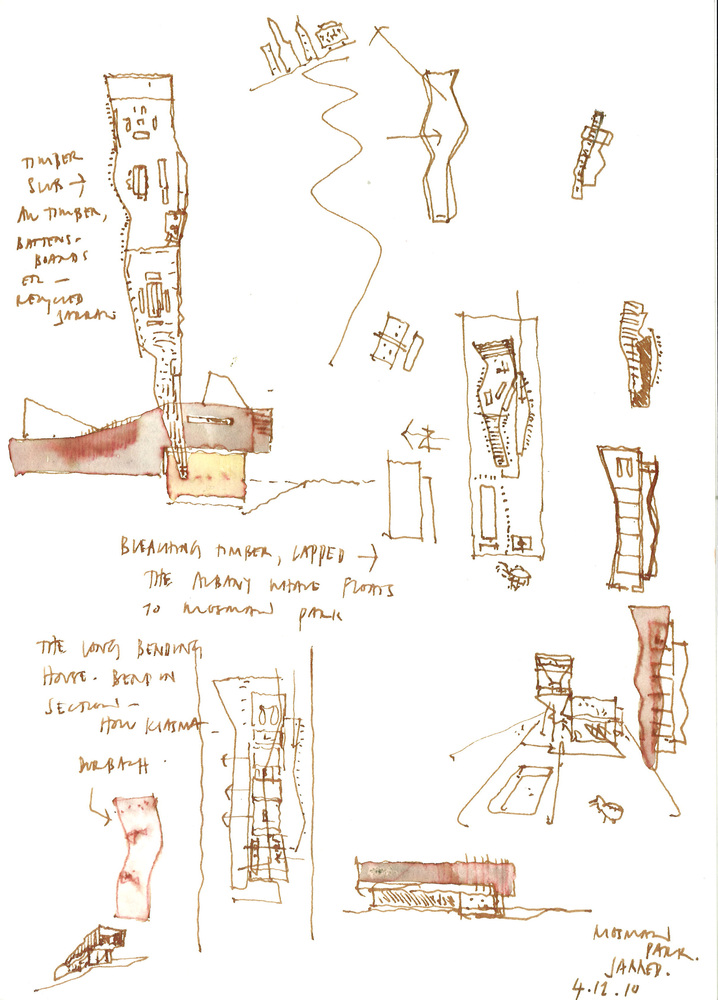 TIMBER
SLUB →
ALL TIMBER,
BATTENS -
BOARDS
ETC —
RECYCLED
JARRAH
BLEACHING TIMBER, LAPPED →
THE ALBANY WHALE FLOATS
TO MOSMAN PARK
THE LONG BENDING
HOUSE. BEND IN
SECTION —
HOW KIASMA -
DURBACH.
MOSMAN
PARK.
JARRED.
4.12.10